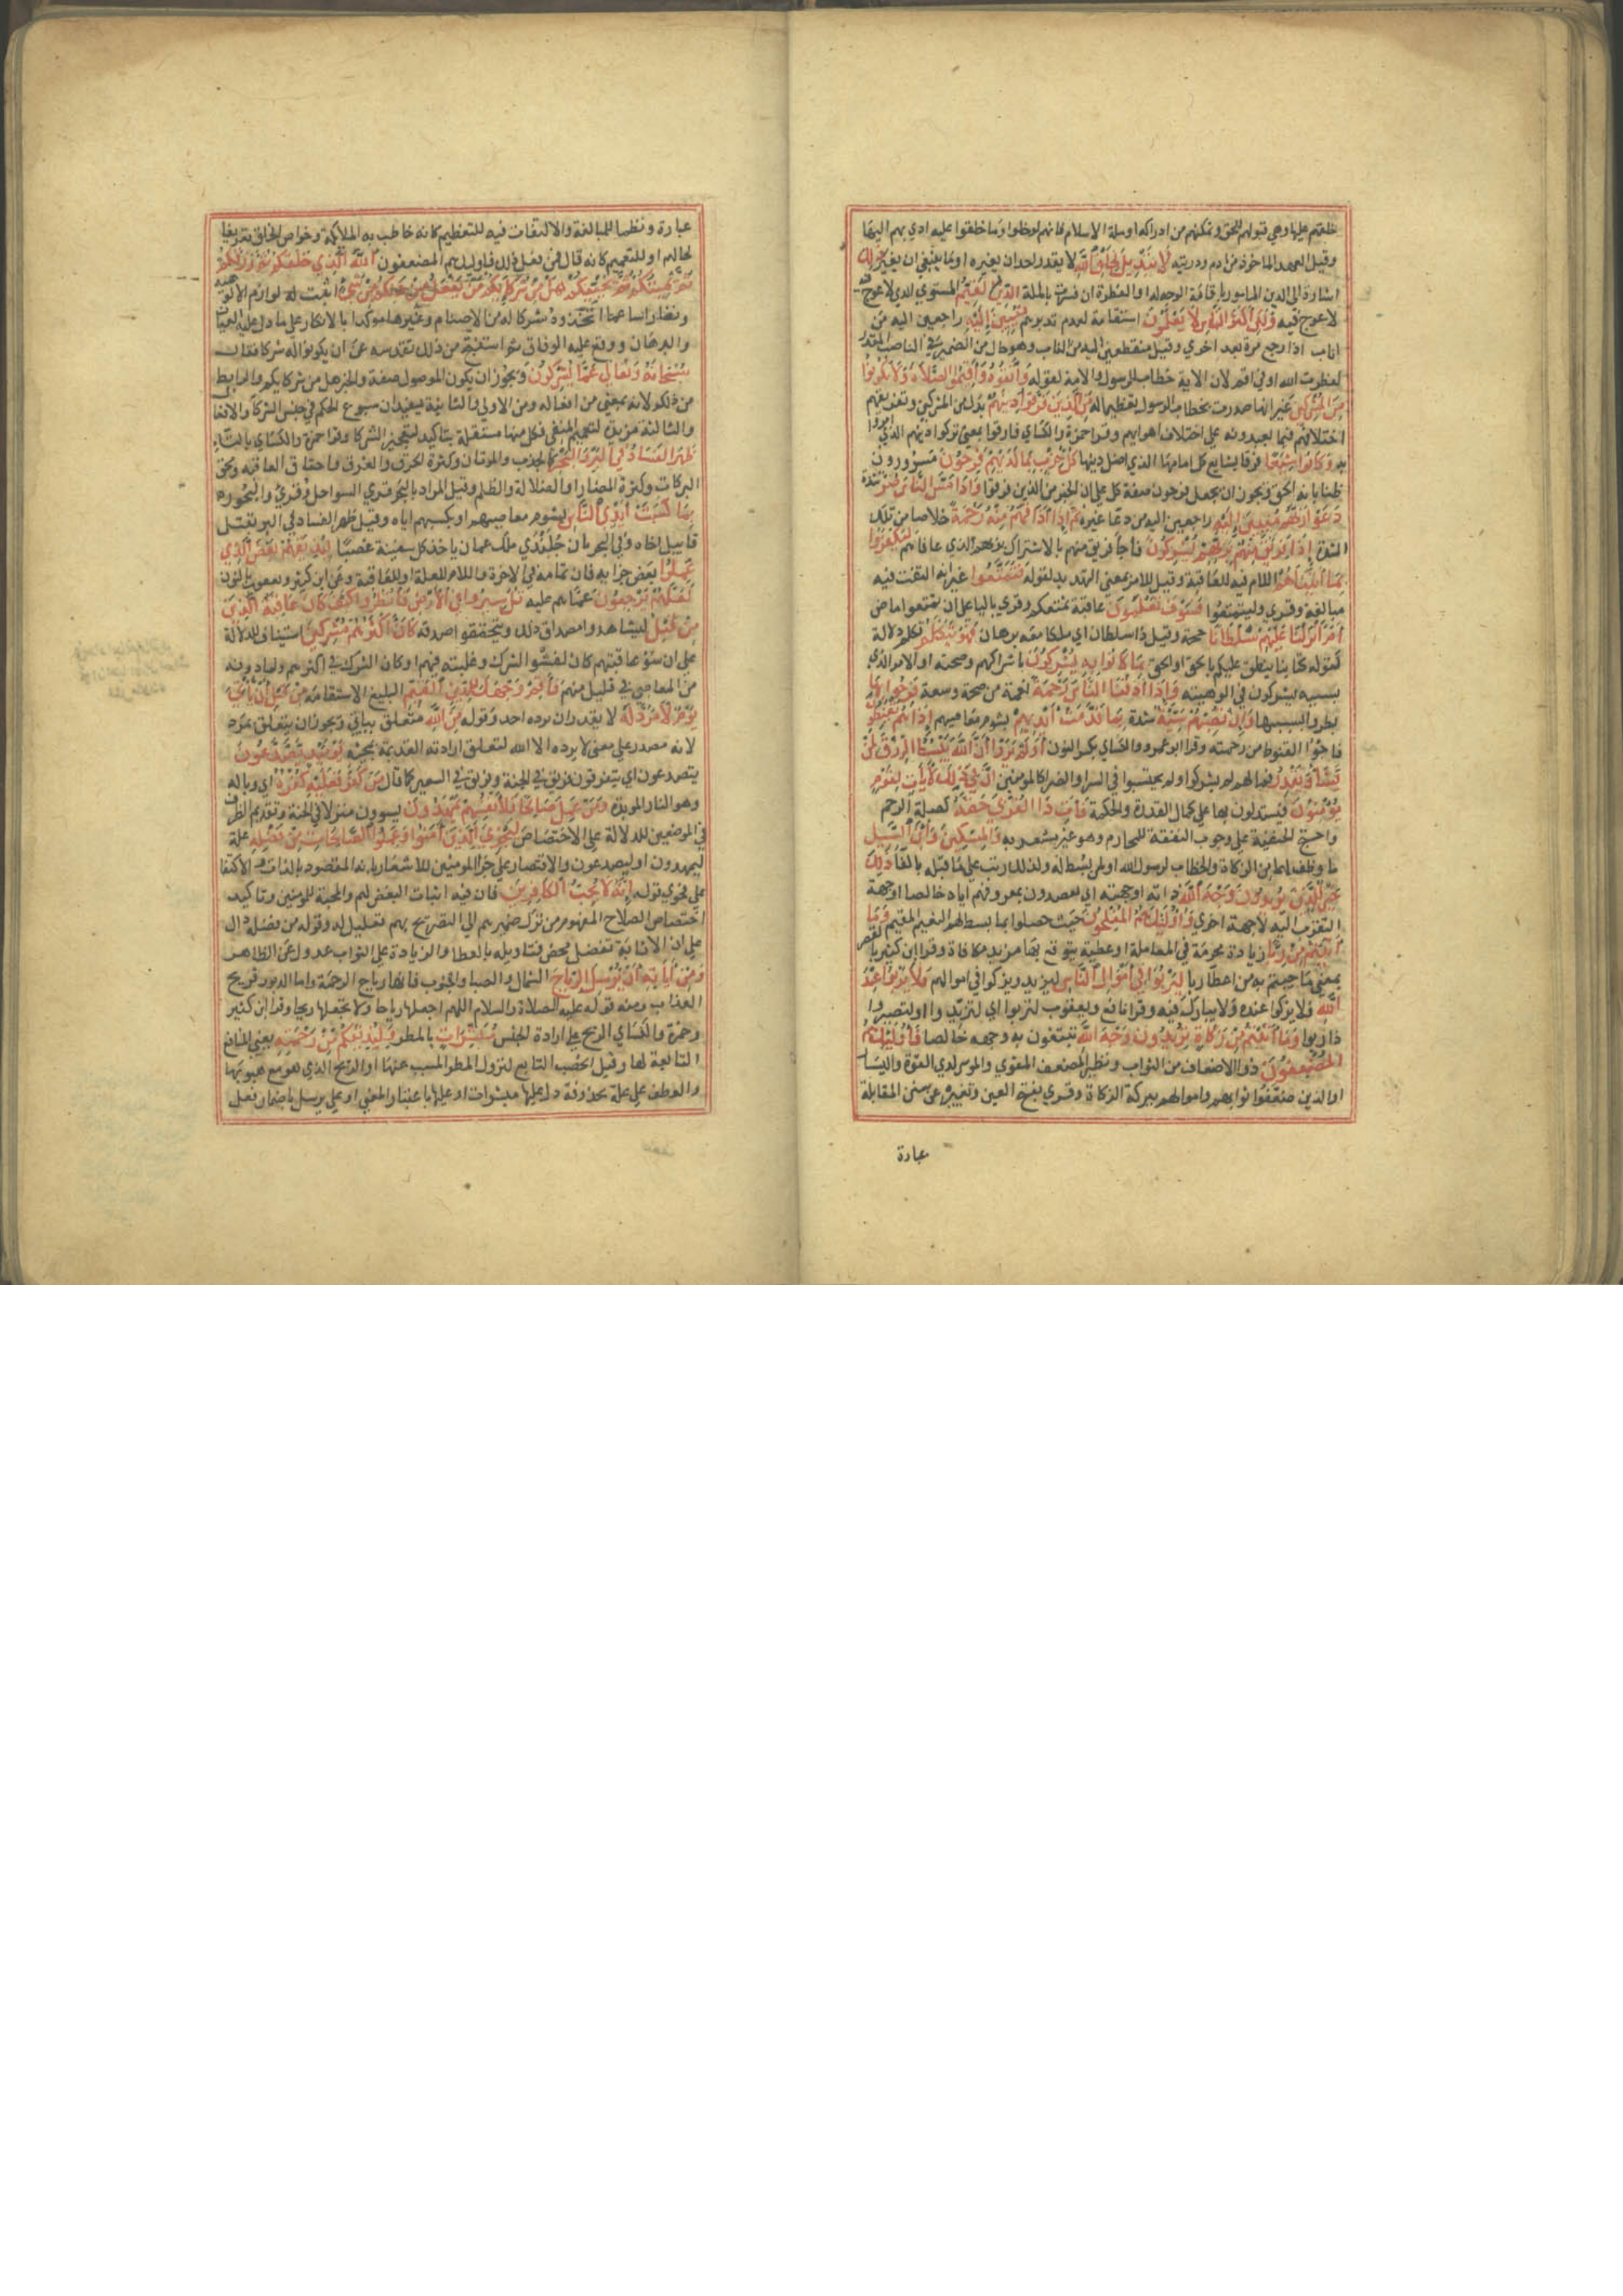 خلقتهم عليها وهي قبولهم الحق وتمكنهم من ادراكه او ملة الاسلام فانهم لو خلوا وما خلقوا عليه ادي بهم اليها
وقيل العهد الماخوذ من ادم وذريته لا تبديل لخلق الله لا يقدر احد ان يغيره او ما ينبغي ان يغير ذلك
اشارة الى الدين المامور باقامة الوجه له او الفطرة ان فسرت بالملة الدين القيم المستوي الذي لا عوج
لا عوج فيه ولكن اكثر الناس لا يعلمون استقامته لعدم تدبرهم منيبين اليه راجعين اليه من
اناب اذا رجع مرة بعد اخري وقيل منقطعين اليه من الناب وهو حال من الضمير في الناصب المقدر
لفطرت الله او في اقم لان الاية خطاب للرسول والامة لقوله واتقوه واقيموا الصلاة ولا تكونوا
من المشركين غير انها صدرت بخطاب الرسول تعظيما له من الذين فرقوا دينهم بدل من المشركين وتفريقهم
اختلافهم فيما يعبدونه على اختلاف اهوايهم وقرا حمزة والكساي فارقوا بمعني تركوا دينهم الذي امروا
به وكانوا شيعا فرقا يشايع كل امامها الذي اضل دينها كل حزب بما لديهم فرحون مسرورون
ظنا بانه الحق ويجوز ان يجعل فرحون صفة كل علي ان الخبر من الذين فرقوا واذا مس الناس ضر شدة
دعوا ربهم منيبين اليه راجعين اليه من دعا غيره ثم اذا اذاقهم منه رحمة خلاصا من تلك
الشدة اذا فريق منهم بربهم يشركون فاجا فريق منهم بالاشراك بربهم الذي عافاهم ليكفروا
بما اتيناهم اللام فيه للعاقبة وقيل للامر بمعني التهديد لقوله فتمتعوا غير انه التفت فيه
مبالغة وقري وليتمتعوا فسوف تعلمون عاقبة تمتعكم وقري باليا على ان تمتعوا ماض
ام انزلنا عليهم سلطانا حجة وقيل ذا سلطان اي ملكا معه برهان فهو يتكلم تكلم دلالة
كقوله كتابنا ينطق عليكم بالحق او نطق بما كانوا به يشركون باشراكهم وصحته او الامر الذي
بسببه يشركون في الوهيته واذا اذقنا الناس رحمة نعمة من صحة وسعة فرحوا بها
بطروا بسببها وان تصبهم سيئة شدة بما قدمت ايديهم بشوم معاصيهم اذا هم يقنطون
فاجؤا القنوط من رحمته وقرا ابو عمرو والكساي بكسر النون اولم يروا ان الله يبسط الرزق لمن
يشا ويقدر فما لهم لم يشكروا ولم يحتسبوا في السرا والضرا كالمومنين ان في ذلك لايات لقوم
يؤمنون فيستدلون بها علي كمال القدرة والحكمة فات ذا القربي حقه كصلة الرحم
واحتج الحنفية على وجوب النفقة للمحارم وهو غير مشعر به والمسكين وابن السبيل
ما وظف لهما من الزكاة والخطاب لرسول الله او لمن بسط له ولذلك رتب على ما قبله بالفا ذلك
خير للذين يريدون وجه الله ذاته او جهته اي يقصدون بمعروفهم اياه خالصا او جهة
التقرب اليه لا جهة اخري واولئك هم المفلحون حيث حصلوا بما بسط لهم النعيم المقيم وما
اتيتم من ربا زيادة محرمة في المعاملة او عطية يتوقع بها مزيد مكافاة وقرا ابن كثير بالقصر
بمعني ما جيتم به من اعطا ربا ليربوا في اموال الناس ليزيد ويزكوا في اموالهم فلا يربوا عند
الله فلا يزكوا عنده ولا يبارك فيه وقرا نافع ويعقوب لتربوا اي لتزيدوا او لتصيروا
ذا ربوا وما اتيتم من زكاة تريدون وجه الله تبتغون به وجهه خالصا فاوليك هم
المضعفون ذوا الاضعاف من الثواب ونظير المضعف المقوي والموسر لذي القوة واليسار
او الذين ضعفوا ثوابهم واموالهم ببركة الزكاة وقري بفتح العين وتغييره عن سنن المقابلة
عبارة
عبارة ونظما للمبالغة والالتفات فيه للتعظيم كانه خاطب به الملايكة وخواص الخلق تعريفا
لحالهم او للتعميم كانه قال فمن فعل ذلك فاوليك هم المضعفون الله الذي خلقكم ثم رزقكم
ثم يميتكم ثم يحييكم هل من شركايكم من يفعل من ذلكم من شئ اثبت له لوازم الالوهية
ونفاها راسا عما اتخذوه شركا له من الاصنام وغيرها موكدا بالانكار علي ما دل عليه العيان
والبرهان ووقع عليه الوفاق ثم استنتج من ذلك تقدسه عن ان يكونوا له شركا فقال
سبحانه وتعالى عما يشركون ويجوز ان يكون الموصول صفة والخبر هل من شركايكم والرابط
من ذلكم لانه بمعني من افعاله ومن الاولي والثانية يفيدان شيوع الحكم في جنس الشركا والافعال
والثالثة مزيدة لتعميم المنفي فكل منها مستقلة بتاكيد لتعجيز الشركا وقرا حمزة والكساي بالتاء
ظهر الفساد في البر والبحر كالجدب والموتان وكثرة الحرق والغرق واخفاق الغاصة ومحق
البركات وكثرة المضار او الضلالة والظلم وقيل المراد بالبحر قري السواحل وقري والبحور
بما كسبت ايدي الناس بشوم معاصيهم او بكسبهم اياه وقيل ظهر الفساد في البر بقتل
قابيل اخاه وفي البحر بان جلندي ملك عمان ياخذ كل سفينة غصبا ليذيقهم بعض الذي
عملوا بعض جزايه فان تمامه في الاخرة واللام للعلة او للعاقبة وعن ابن كثير ويعقوب بالنون
لعلهم يرجعون عما هم عليه قل سيروا في الارض فانظروا كيف كان عاقبة الذين
من قبل ليشاهدوا مصداق ذلك ويتحققوا صدقه كان اكثرهم مشركين استيناف للدلالة
على ان سؤ عاقبتهم كان لفشو الشرك وغلبته فيهم او كان الشرك في اكثرهم ولما دونه
من المعاصي في قليل منهم فاقم وجهك للدين القيم البليغ الاستقامة من قبل ان ياتي
يوم لا مرد له لا يقدر ان يرده احد وقوله من الله متعلق بياتي ويجوز ان يتعلق بمرد
لانه مصدر على معني لا يرده الا الله لتعلق ارادته القديمة بمجيئه يوميذ يصدعون
يتصدعون اي يتفرقون فريق في الجنة وفريق في السعير كما قال من كفر فعليه كفره اي وباله
وهو النار الموبدة ومن عمل صالحا فلانفسهم يمهدون يسوون منزلا في الجنة وتقديم الظرف
في الموضعين للدلالة على الاختصاص ليجزي الذين امنوا وعملوا الصالحات من فضله علة
ليمهدون او ليصدعون والاقتصار علي جزا المومنين للاشعار بانه المقصود بالذات والاكتفا
علي فحوي قوله انه لا يحب الكافرين فان فيه اثبات البغض لهم والمحبة للمومنين وتاكيد
اختصاص الصلاح المفهوم من ترك ضميرهم الي التصريح بهم تعليل له وقوله من فضله دال
على ان الاثابة تفضل محض وتاويله بالعطا او الزيادة على الثواب عدول عن الظاهر
ومن اياته ان يرسل الرياح الشمال والصبا والجنوب فانها رياح الرحمة واما الدبور فريح
العذاب ومنه قوله عليه الصلاة والسلام اللهم اجعلها رياحا ولا تجعلها ريحا وقرا ابن كثير
وحمزة والكساي الريح على ارادة الجنس مبشرات بالمطر وليذيقكم من رحمته يعني المنافع
التابعة لها وقيل الخصب التابع لنزول المطر المسبب عنها او الروح الذي هو مع هبوبها
والعطف على علة محذوفة دل عليها مبشرات او عليها باعتبار المعني او على يرسل باضمار فعل